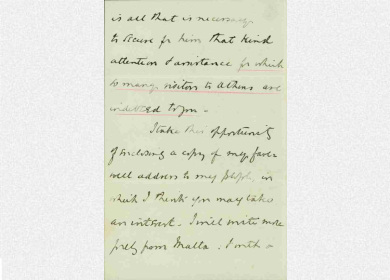 is all that is necessary
to secure for him that kind
attention & assistance for which
so many visitors to Athens are
indebted to you -
I take this opportunity
of enclosing a copy of my fare-
well address to my people, in
which I think you may take
an interest. I will write more
from Malta. I with